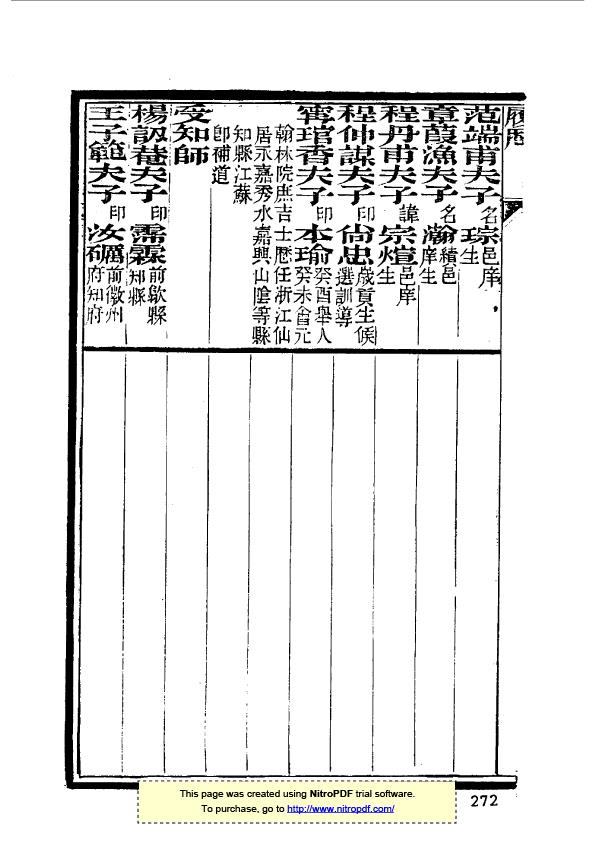 履歷
范端甫夫子名琮邑庠生
章葭漁夫子名瀚績邑庠生
程丹甫夫子諱宗煊邑庠生
程仲謀夫子印尙忠歲貢生候選訓導
甯琯香夫子印本瑜癸酉舉人癸未會元
翰林院庶吉士歷任浙江仙
居永嘉秀水嘉興山陰等縣
知縣江蘇
卽補道
受知師
楊訒菴夫子印霈霖前歙縣知縣
王子範夫子印汝礪前徽州府知府
This page was created using NitroPDF trial software.
To purchase, go to http://www.nitropdf.com/
272